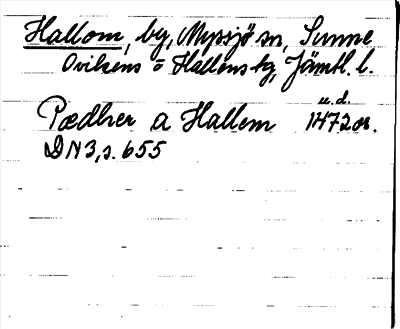 Hallom, by, Myssjö sn, Sunne,
Ovikens o Hallens tg, Jämtl. l.
u.d.
Pædher a Hallem 1472 or.
DN 3, s. 655